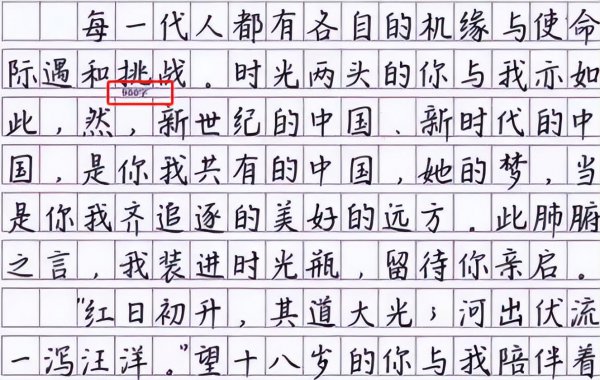 每一代人都有各自的机缘与使命
际遇和挑战。时光两头的你与我亦如
900字
此，然，新世纪的中国、新时代的中
国，是你我共有的中国，她的梦，当
是你我齐追逐的美好的远方。此肺腑
之言，我装进时光瓶，留待你亲启。
"红日初升，其道大光；河出伏流
一泻汪洋。"望十八岁的你与我陪伴着